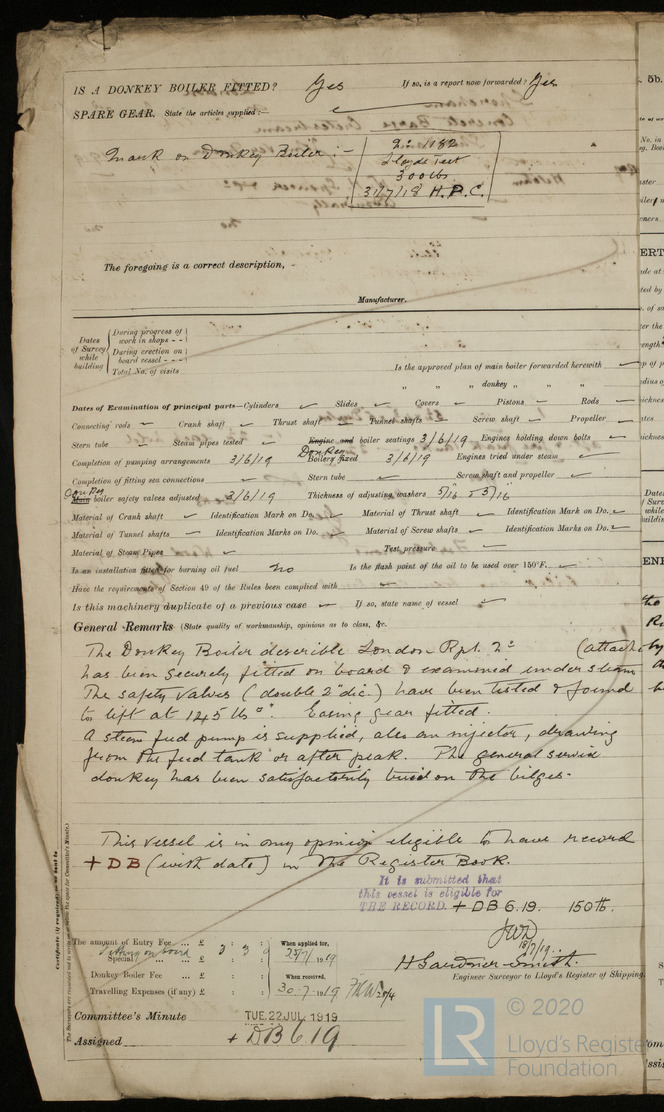 IS A DONKEY BOILER FITTED? Yes If so, is a report now forwarded? Yes
SPARE GEAR. State the articles supplied:—
Mark on Donkey Boiler:—
No 1182
Lloyds Test
300 lbs
31/7/18 H.P.C.
The foregoing is a correct description,
Manufacturer.
Dates of Survey while building
During progress of work in shops - -
During erection on board vessel - - -
Total No. of visits
Is the approved plan of main boiler forwarded herewith
" " " donkey " " "
Dates of Examination of principal parts—Cylinders Slides Covers Pistons Rods
Connecting rods Crank shaft Thrust shaft Tunnel shafts Screw shaft Propeller
Stern tube Steam pipes tested Engine and boiler seatings 3/6/19 Engines holding down bolts
Completion of pumping arrangements 3/6/19 Donkey Boilers fixed 3/6/19 Engines tried under steam
Completion of fitting sea connections Stern tube Screw shaft and propeller
Donkey
Main boiler safety valves adjusted 3/6/19 Thickness of adjusting washers 5/16 & 5/16
Material of Crank shaft Identification Mark on Do. Material of Thrust shaft Identification Mark on Do.
Material of Tunnel shafts Identification Marks on Do. Material of Screw shafts Identification Marks on Do.
Material of Steam Pipes Test pressure
Is an installation fitted for burning oil fuel no Is the flash point of the oil to be used over 150°F.
Have the requirements of Section 49 of the Rules been complied with
Is this machinery duplicate of a previous case If so, state name of vessel
General Remarks (State quality of workmanship, opinions as to class, &c.
The Donkey Boiler describible London Rpt. No (attach
has been securely fitted on board & examined under steam
The safety valves (double 2" dia.) have been tested & found
to lift at 145 lbs □". Easing gear fitted.
A steam feed pump is supplied, also an injector, drawing
from the feed tank or after peak. The general service
donkey has been satisfactorily tried on the bilges.
This vessel is in my opinion eligible to have record
+ DB (with date) in the Register Book.
It is submitted that
this vessel is eligible for
THE RECORD. + DB 6.19. 150 lb.
JWD
18/7/19
The amount of Entry Fee ... £ : :
Fitting on board
Special ... £ 3 : 3 :
Donkey Boiler Fee ... £ : :
Travelling Expenses (if any) £ : :
When applied for,
1919
When received,
30.7.1919
H Gardner-Smith.
Engineer Surveyor to Lloyd's Register of Shipping.
Committee's Minute TUE. 22 JUL. 1919
Assigned + DB 6 19
© 2020
LR
Lloyd's Register
Foundation